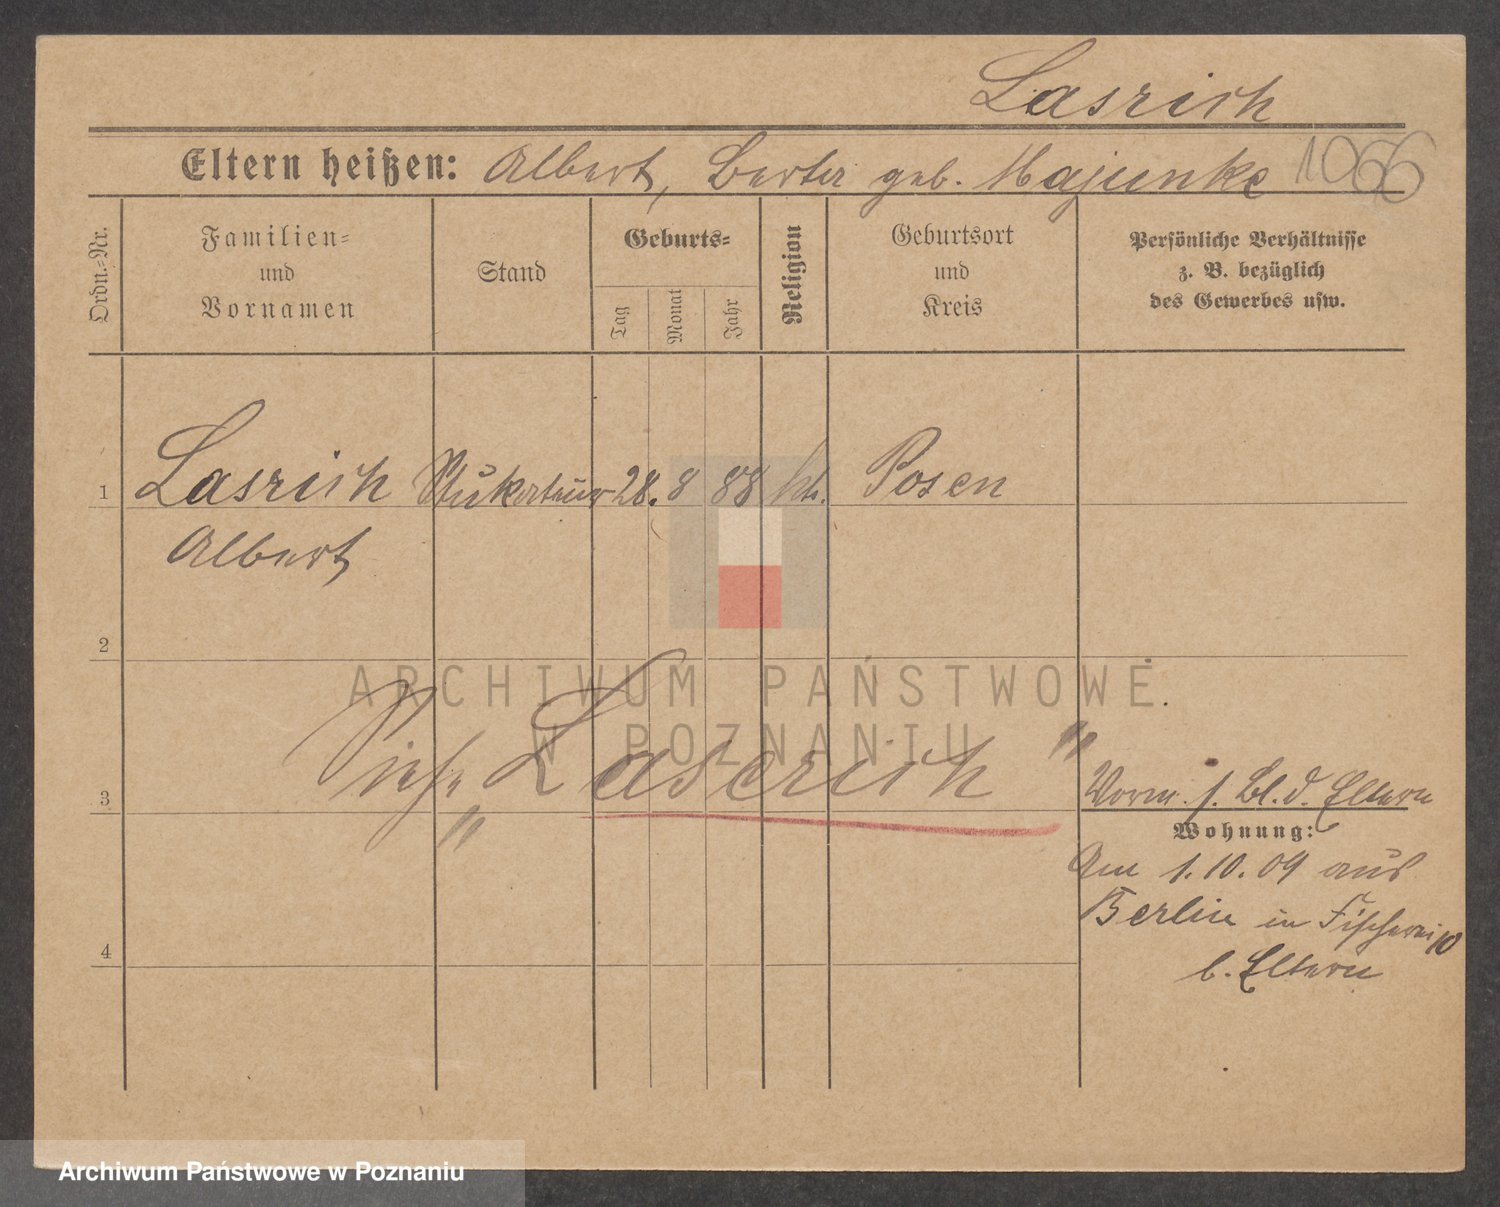 Lasrich
Eltern heißen: Albert, Berta geb. Majunke 1066
Ordn.-Nr.
Familien-
und
Vornamen
Stand
Geburts-
Tag
Monat
Jahr
Religion
Geburtsort
und
Kreis
Persönliche Verhältnisse
z. B. bezüglich
des Gewerbes usw.
1 Lasrich Stukateur 28. 8 88 kt. Posen
Albert
2
ARCHIWUM PAŃSTWOWE
W POZNANIU
Siehe „Lascrich"
3
Vorm. s. Bl. d. Eltern
Wohnung:
Am 1.10.09 aus
Berlin in Fischerei 10
b. Eltern
4
Archiwum Państwowe w Poznaniu